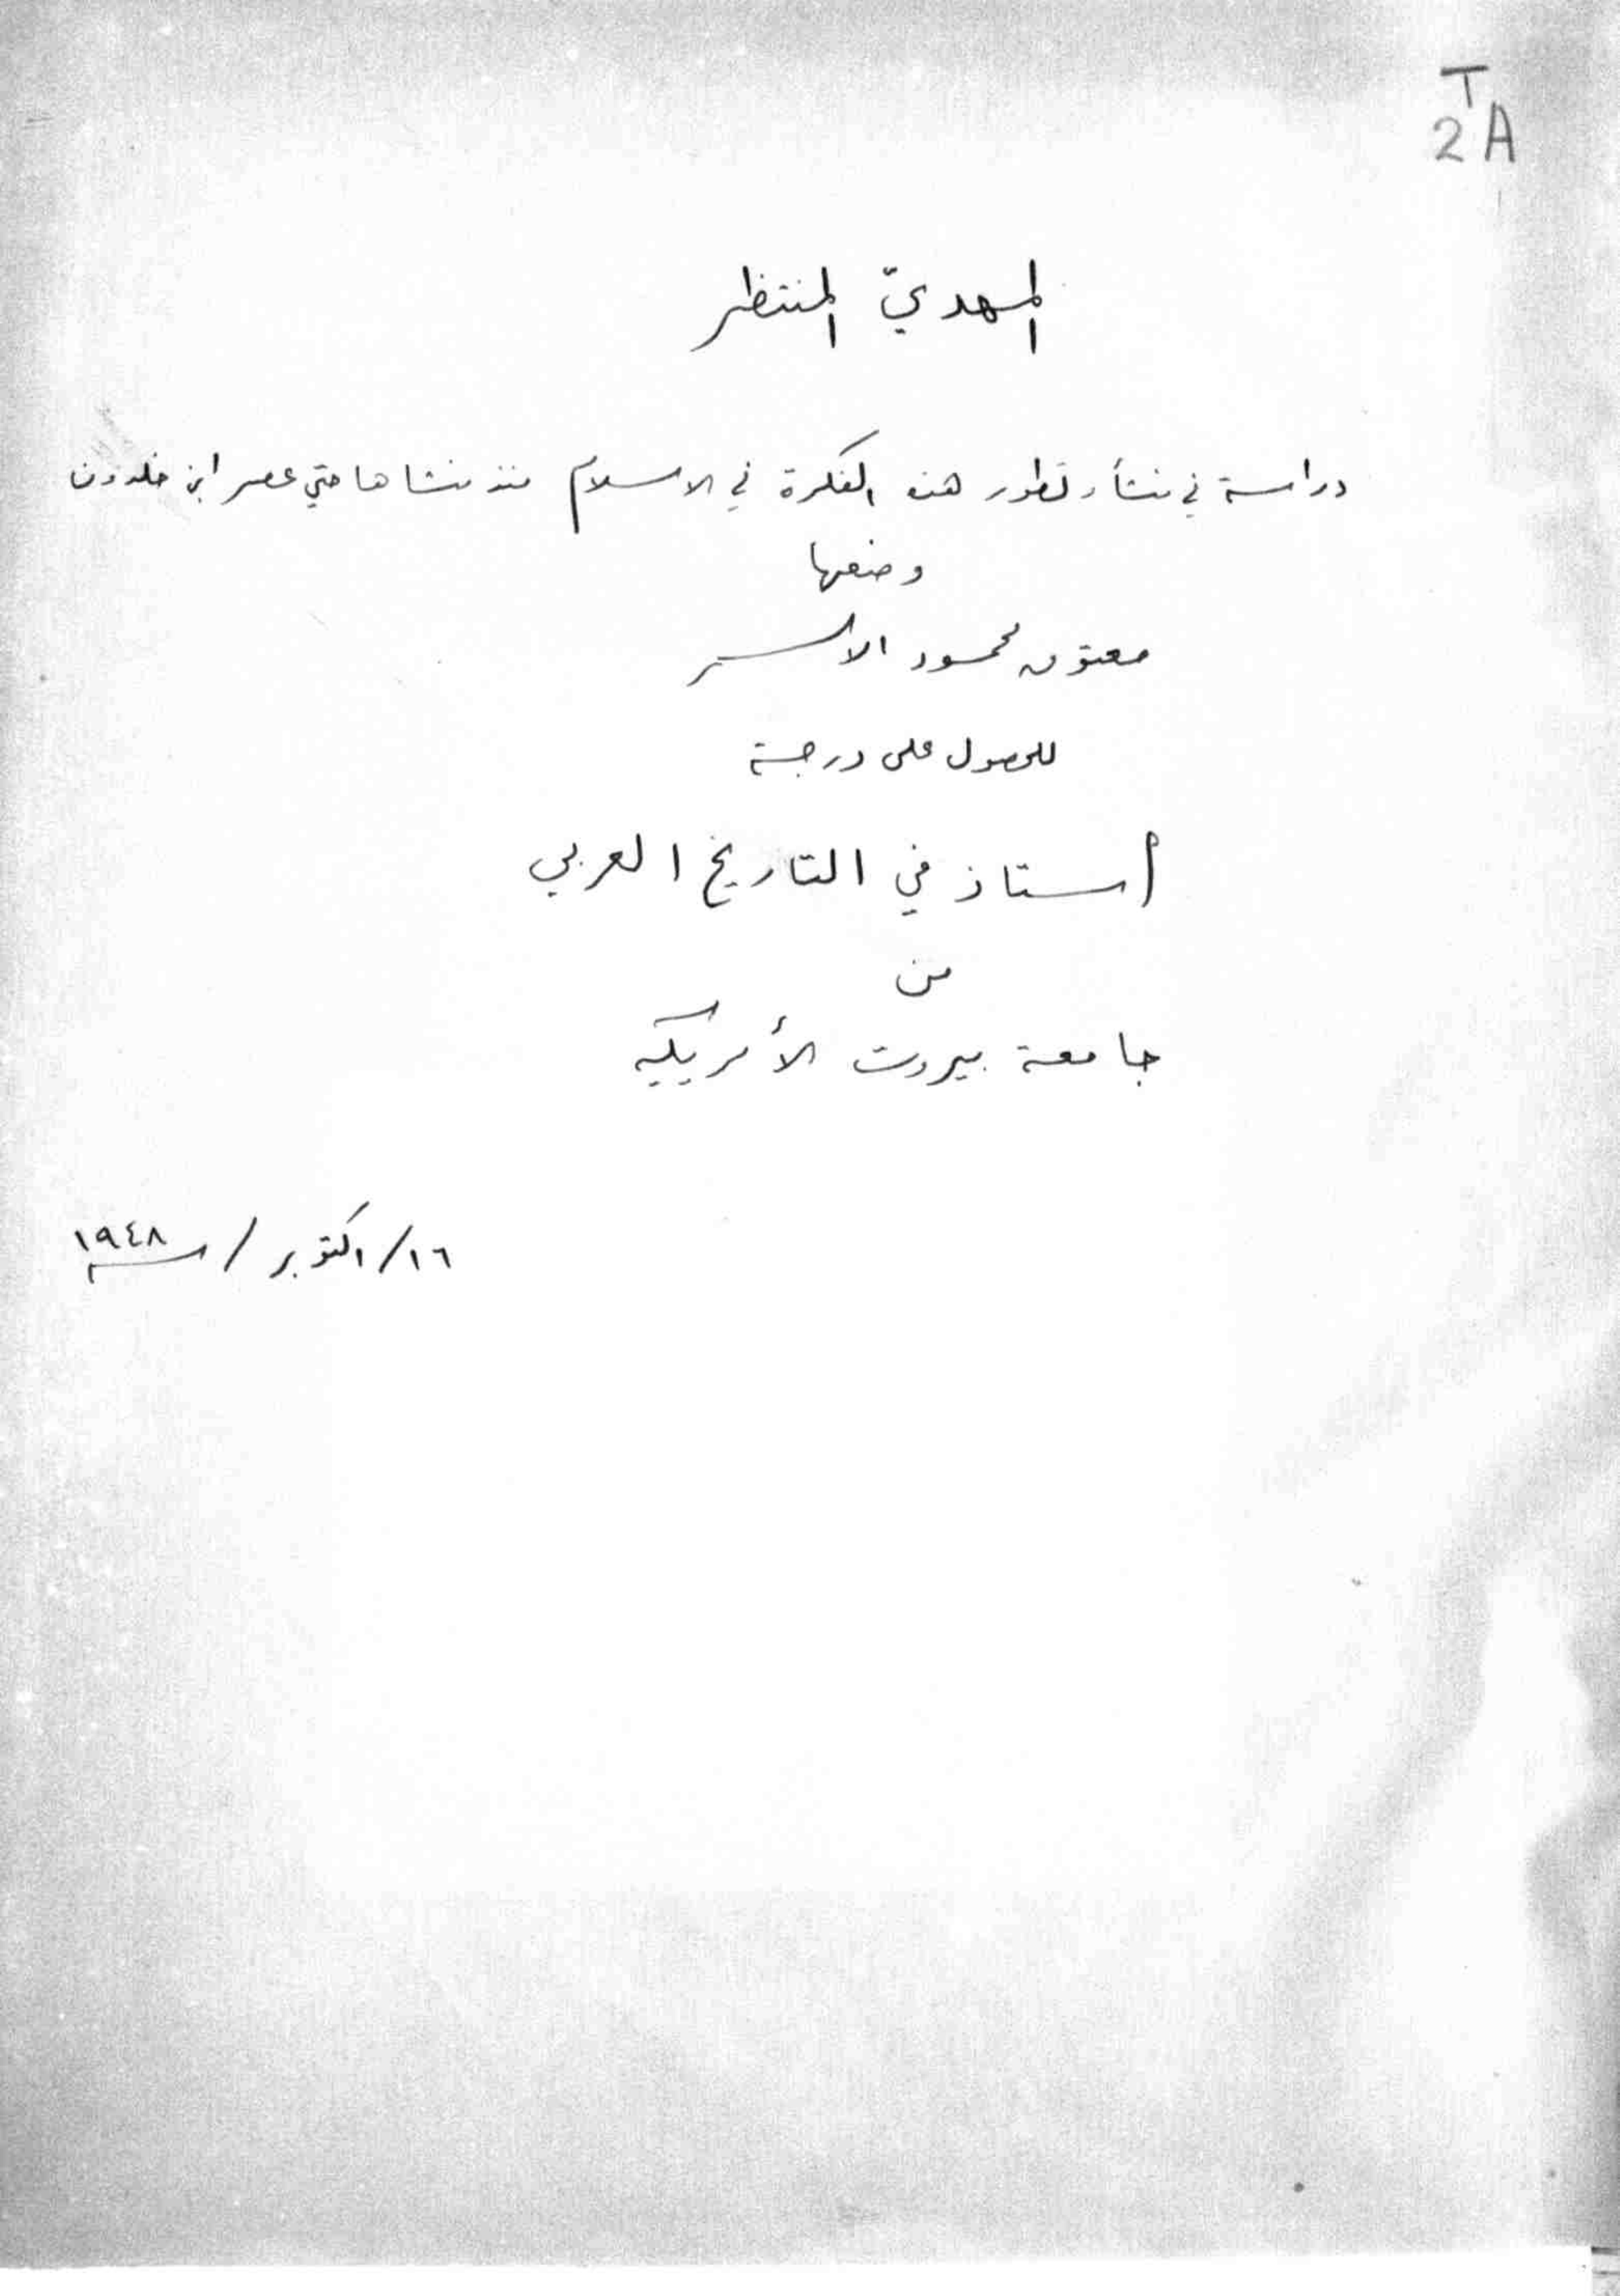 T
2A
المهديّ المنتظر
دراسة في منشأ وتطور هذه الفكرة في الاسلام منذ منشاها حتي عصر ابن خلدون
وضعها
محمود الاسمر
للحصول على درجة
أستاذ في التاريخ العربي
من
جامعة بيروت الأمريكيه
١٦/ اكتوبر / سنة ١٩٤٨